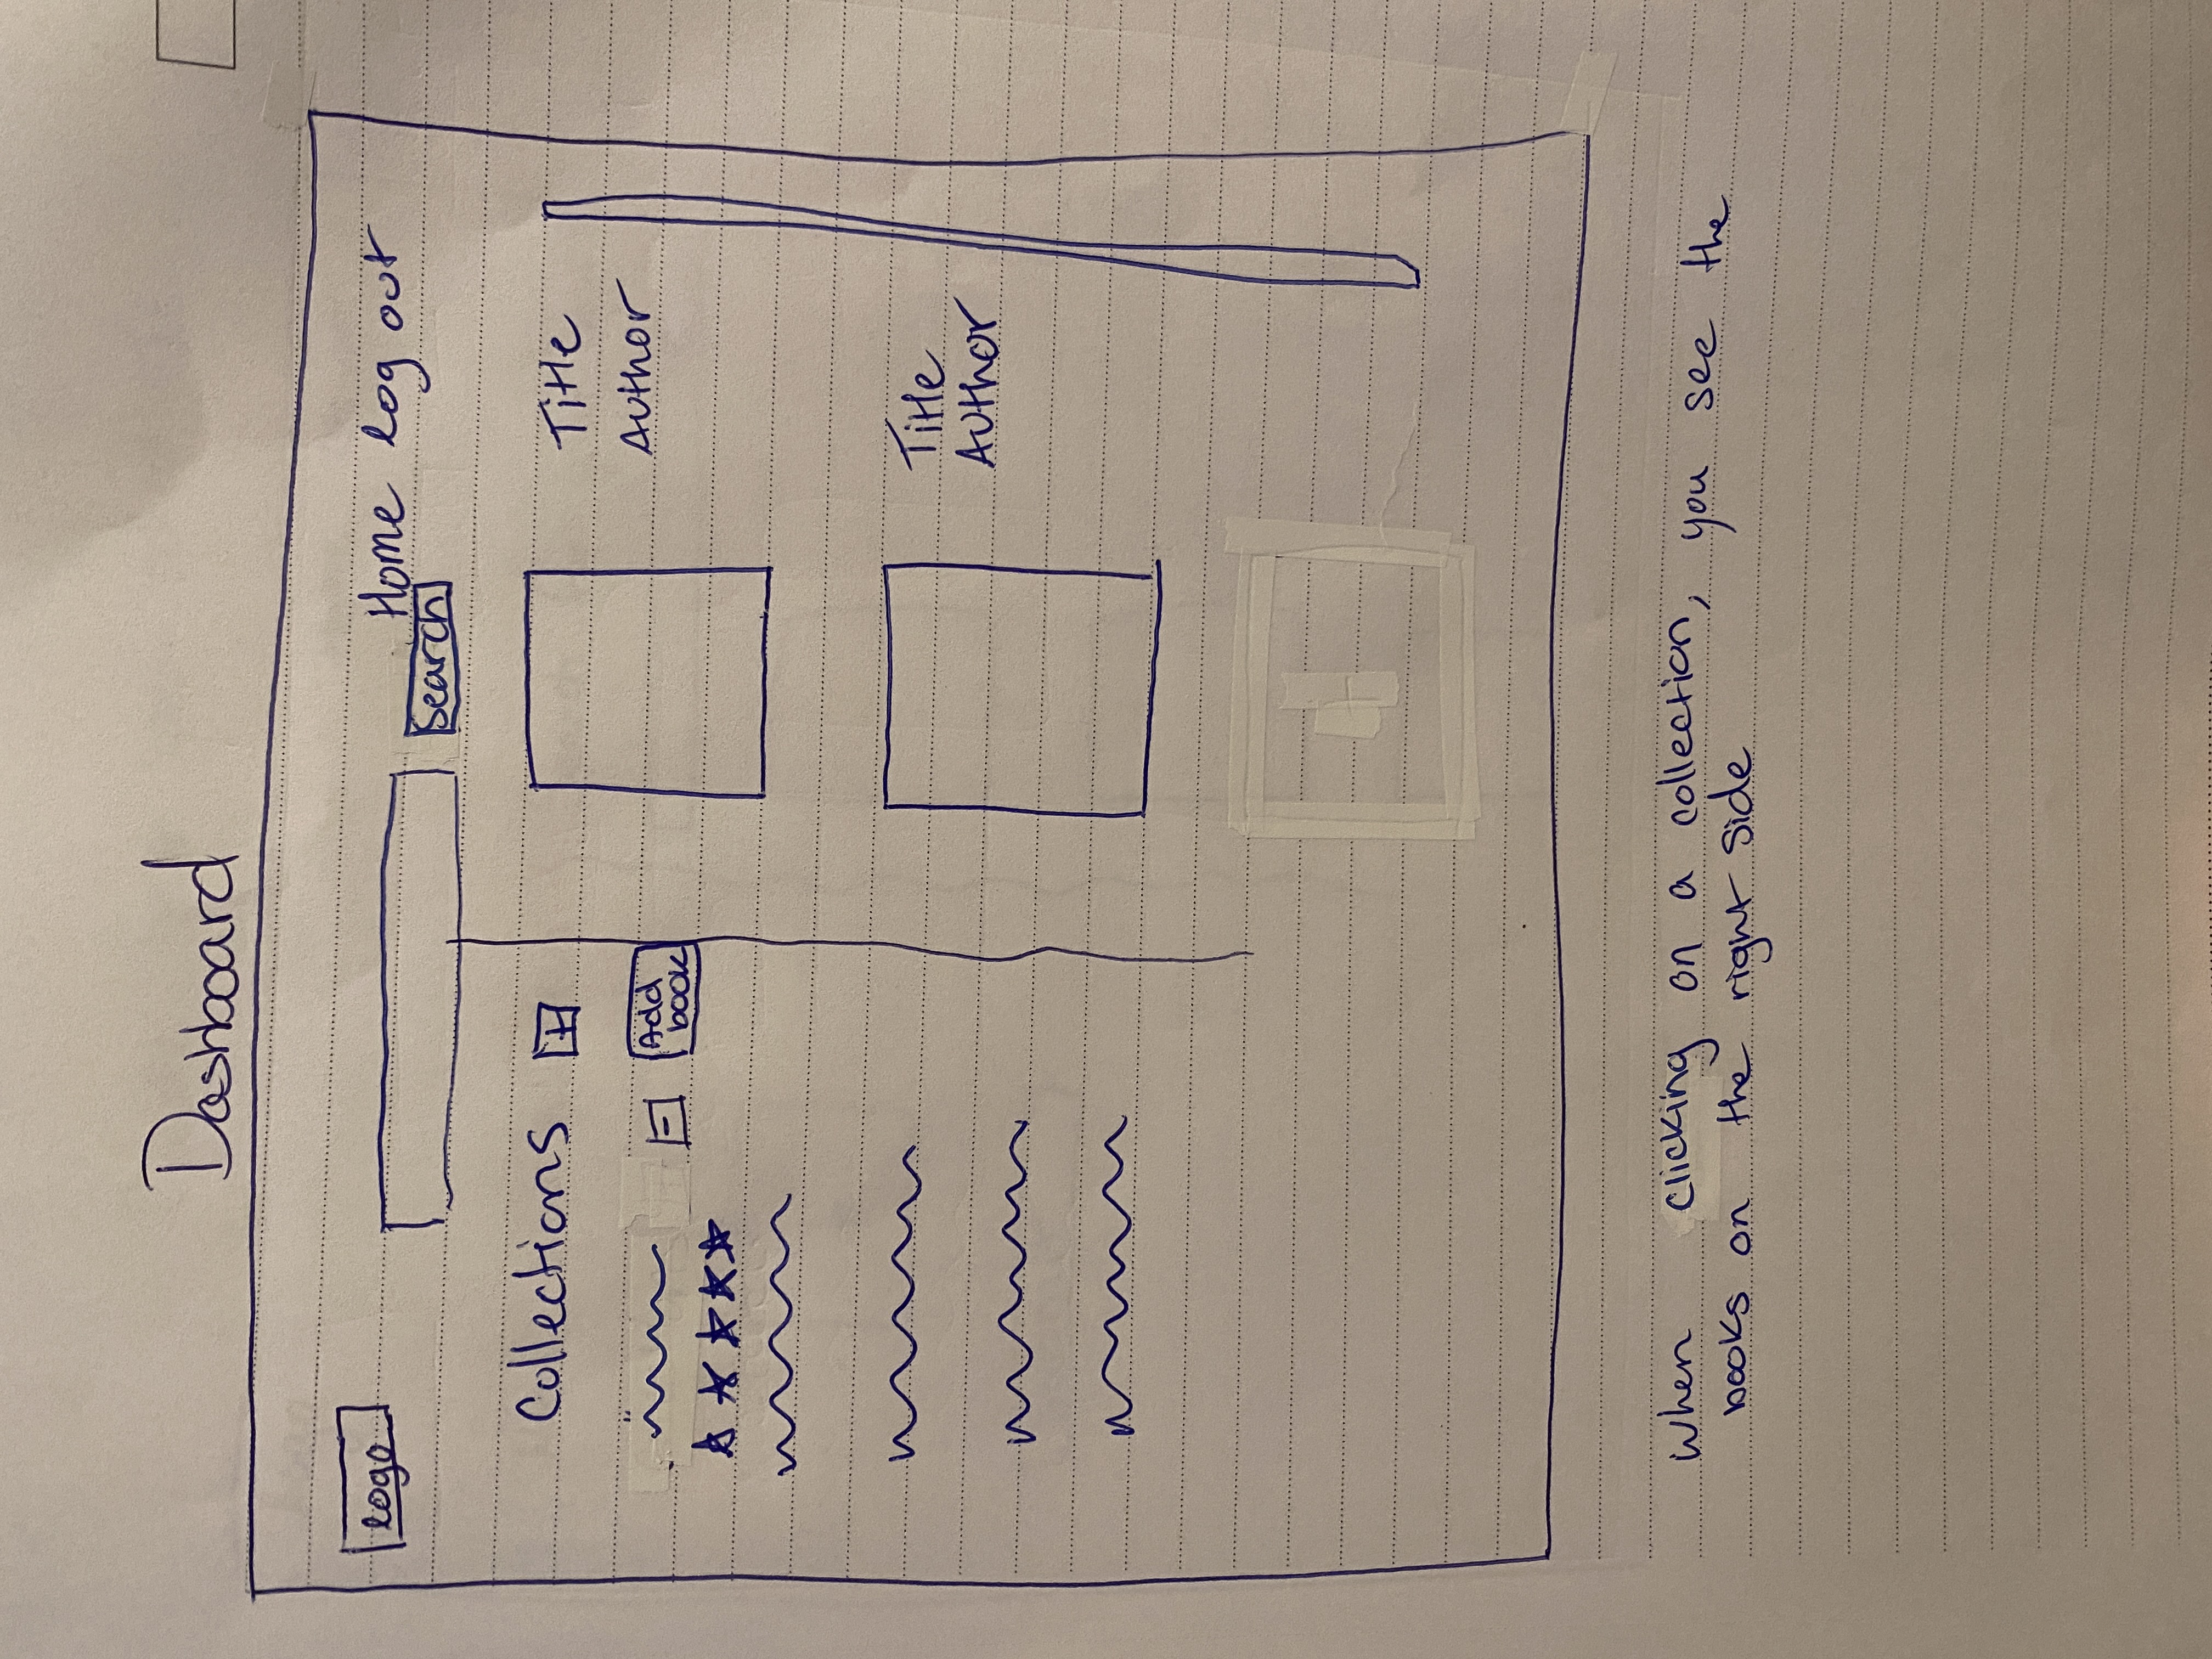 Dashboard
logo
Home log out
Search
Collections +
- Add
book
Title
Author
Title
Author
when clicking on a collection, you see the
books on the right side